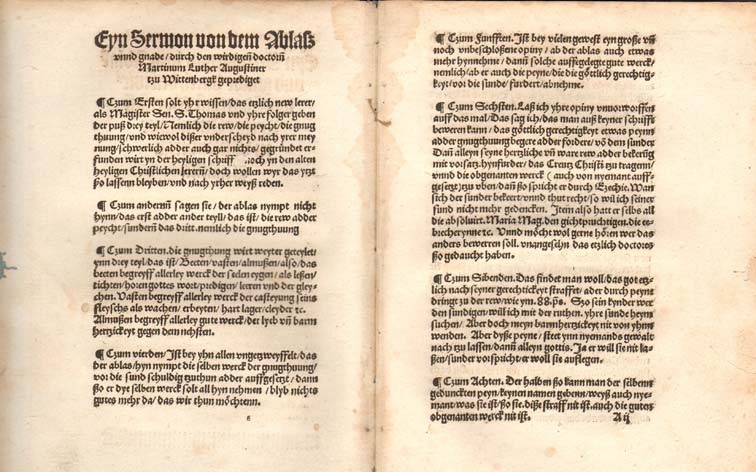 Eyn Sermon von dem Ablaß
vnnd gnade/ durch den wirdigenn doctornn
Martinum Luther Augustiner
tzu Wittenbergk geprediget
¶ Czum Ersten solt yhr wissen/ das etzlich new lerer/
als Magister Sen. S. Thomas vnd yhre folger geben
der puß drey teyl/ Nemlich die rew/ die peycht/ die gnug
thuung/ vnd wiewol dißer vnderscheyd nach yrer mey
nung/ schwerlich adder auch gar nichts/ gegründet er-
funden wirt yn der heyligen schrifft noch yn den alten
heyligen Christlichen lerernn/ doch wollen wyr das ytzt
ßo lassenn bleyben/ vnd nach yrher weyß reden.
¶ Czum andernn sagen sie/ der ablas nympt nicht
hynn/ das erst adder ander teyll/ das ist/ die rew adder
peycht/ sundernn das dritt. nemlich die gnugthuung
¶ Czum Dritten. die gnugthuung wirt weyter geteylet/
ynn drey teyl/ das ist/ Beeten/ vasten/ almußen/ also/ das
beeten begreyff allerley werck der seelen eygen/ als leßen/
tichten/ horen gottes wort/ predigen/ leeren vnd der gley-
chen. Vasten begreyff allerley werck der casteyung seins
fleyschs als wachen/ erbeyten/ hart lager/ cleyder ꝛc.
Almußen begreyff allerley gute werck/ der lyeb vñ barm
hertzickeyt gegen dem nehsten.
¶ Czum vierden/ Ist bey yhn allen vngetzweyffelt/ das
der ablas/ hyn nympt die selben werck der gnugthuung/
vor die sund schuldig tzuthun adder auffgesetzt/ dann
ßo er dye selben werck solt all hyn nehmen/ blyb nichts
gutes mehr da/ das wir thun möchtenn.
¶ Czum Funfften. Ist bey vielen gewest eyn große vñ
noch vnbeschloßene opiny/ ab der ablas auch etwas
mehr hynnehme/ dann solche auffgelegte gute werck/
nemlich/ ab er auch die peyne/ die die götlich gerechtig-
keyt/ vor die sunde/ furdert/ abnehme.
¶ Czum Sechsten. Laß ich yhre opiny vnuorworffen
auff das mal/ Das sag ich/ das man auß keyner schrifft
beweren kann/ das göttlich gerechtigkeyt etwas peynn
adder gnugthuung begere adder fordere/ vö dem sunder
Dañ alleyn seyne hertzliche vñ ware rew adder bekerũg
mit vorsatz. hynfurder/ das Creutz Christi zu tragenn/
vnnd die obgenanten werck (auch von nyemant auff-
gesetzt) zu vben/ dañ ßo spricht er durch Ezechie. Wan
sich der sunder bekeert/ vnnd thut recht/ so wil ich seiner
sund nicht mehr gedencken. Item also hatt er selbs all
die absoluirt. Maria Mag. den gichtpruchtigen. die ee-
brecherynne ꝛc. Vnnd möcht wol gerne hören wer das
anders bewerren soll. vnangesehn das etzlich doctores
ßo gedaucht haben.
¶ Czum Sibenden. Das findet man woll/ das got etz-
lich nach seyner gerechtickeyt straffet/ ader durch peyne
dringt zu der rew/ wie ym. 88. ps. Szo sein kynder wer
den sundigen/ will ich mit der ruthen. yhre sünde heym
suchen/ Aber doch meyn barmhertzickeyt nit von yhnn
wenden. Aber dyße peyne/ steet ynn nyemands gewalt
nach zu lassen/ dann alleyn gottis. Ja er will sie nit la-
ßen/ sunder vorspricht/ er woll sie aufflegen.
¶ Czum Achten. Der halben ßo kann man der selbenn
gedunckten peyn/ keynen namen gebenn/ weyß auch nye-
mant/ was sie ist/ ßo sie. diße straff nit ist. auch die guten
obgenanten werck nit ist. A ij